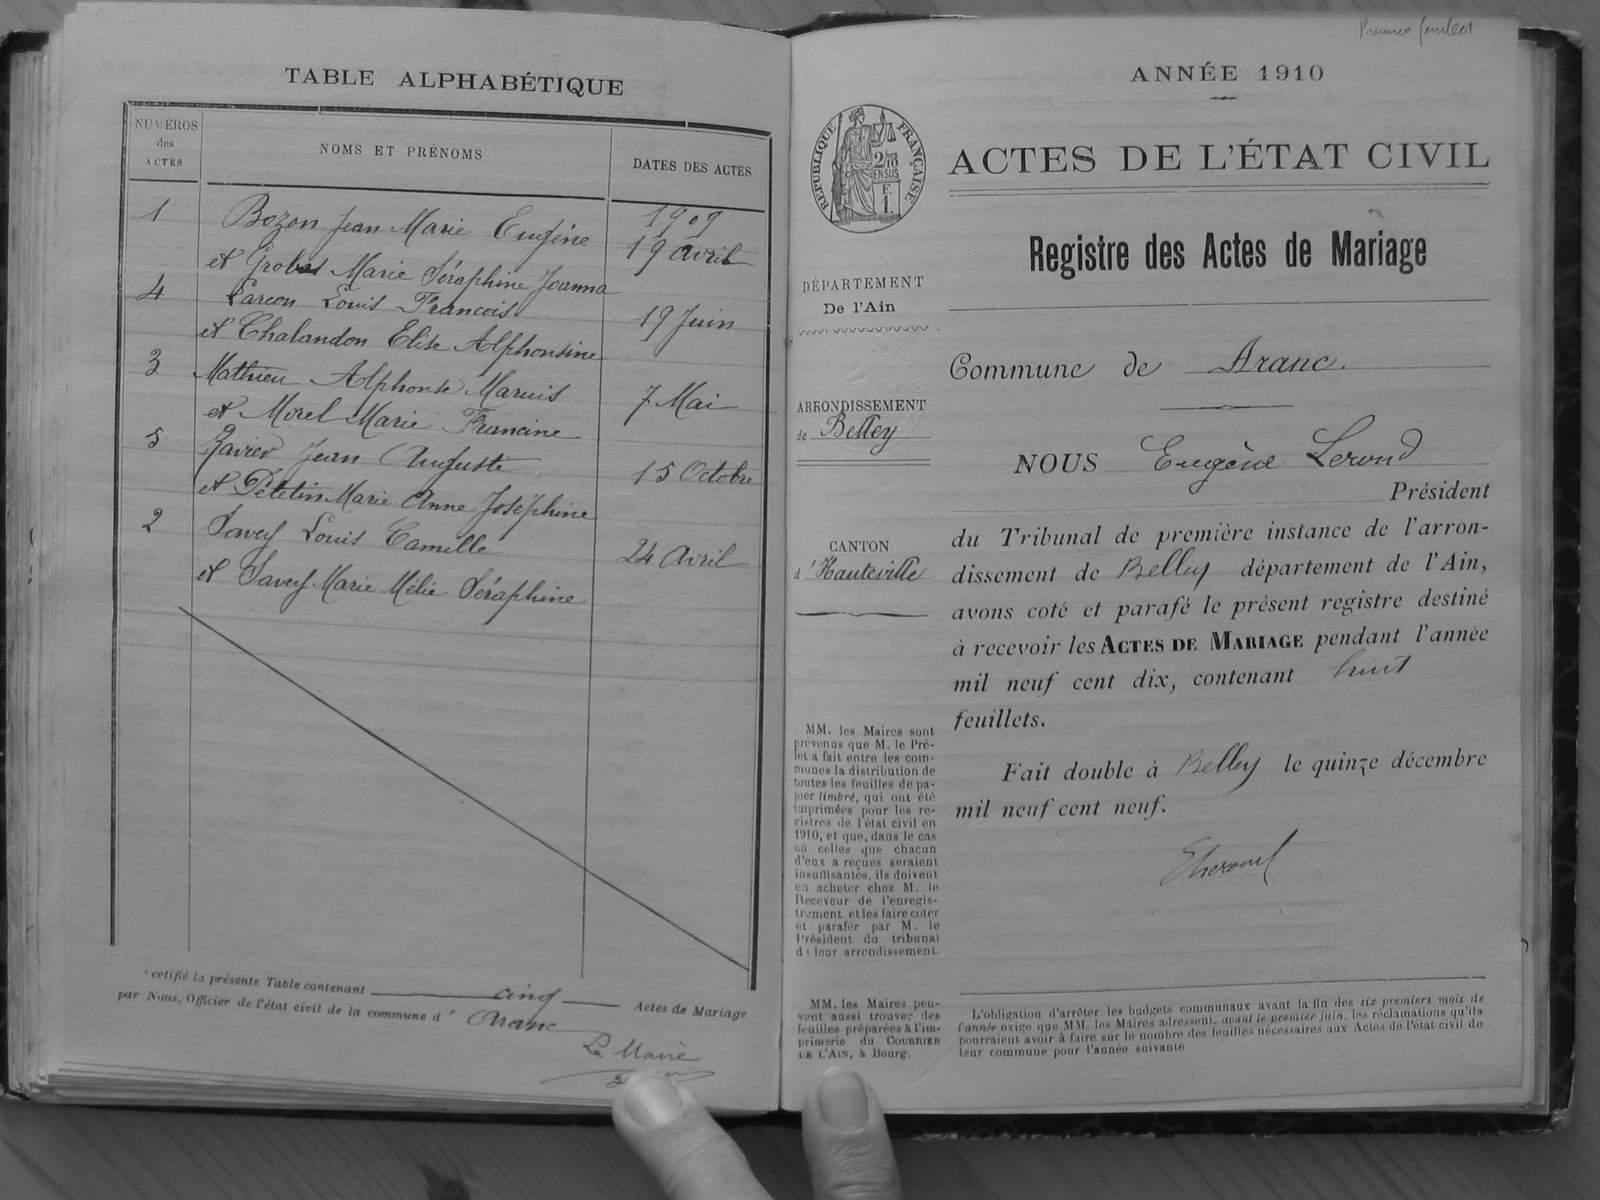 TABLE ALPHABÉTIQUE
NUMÉROS
des
ACTES
NOMS ET PRÉNOMS
DATES DES ACTES
1 Bozon Jean Marie Eugène 1909
19 avril
et Grobas Marie Séraphine Joanna
4 Larcon Louis François 19 Juin
et Chalandon Elise Alphonsine
3 Mathieu Alphonse Marius 7 Mai
et Morel Marie Francine
5 Ravier Jean Auguste 15 Octobre
et Pételin Marie Anne Joséphine
2 Savey Louis Camille 24 Avril
et Savey Marie Mélie Séraphine
Certifié la présente Table contenant cinq Actes de Mariage
par Nous, Officier de l'état civil de la commune d' Aranc
Le Maire
Premier feuillet
ANNÉE 1910
RÉPUBLIQUE FRANÇAISE
2/10
EN SUS
F.
1.
ACTES DE L'ÉTAT CIVIL
Registre des Actes de Mariage
DÉPARTEMENT
De l'Ain
Commune de Aranc.
ARRONDISSEMENT
de Belley
CANTON
d' Hauteville
NOUS Eugène Lerond
Président
du Tribunal de première instance de l'arron-
dissement de Belley département de l'Ain,
avons coté et parafé le présent registre destiné
à recevoir les ACTES DE MARIAGE pendant l'année
mil neuf cent dix, contenant huit
feuillets.
Fait double à Belley le quinze décembre
mil neuf cent neuf.
MM. les Maires sont
prévenus que M. le Pré-
fet a fait entre les com-
munes la distribution de
toutes les feuilles de pa-
pier timbré, qui ont été
imprimées pour les re-
gistres de l'état civil en
1910, et que, dans le cas
où celles que chacun
d'eux a reçues seraient
insuffisantes, ils doivent
en acheter chez M. le
Receveur de l'enregis-
trement et les faire coter
et parafer par M. le
Président du tribunal
de leur arrondissement.
MM. les Maires peu-
vent aussi trouver des
feuilles préparées à l'im-
primerie du COURRIER
DE L'AIN, à Bourg.
L'obligation d'arrêter les budgets communaux avant la fin des six premiers mois de
l'année exige que MM. les Maires adressent, avant le premier juin, les réclamations qu'ils
pourraient avoir à faire sur le nombre des feuilles nécessaires aux Actes de l'état civil de
leur commune pour l'année suivante